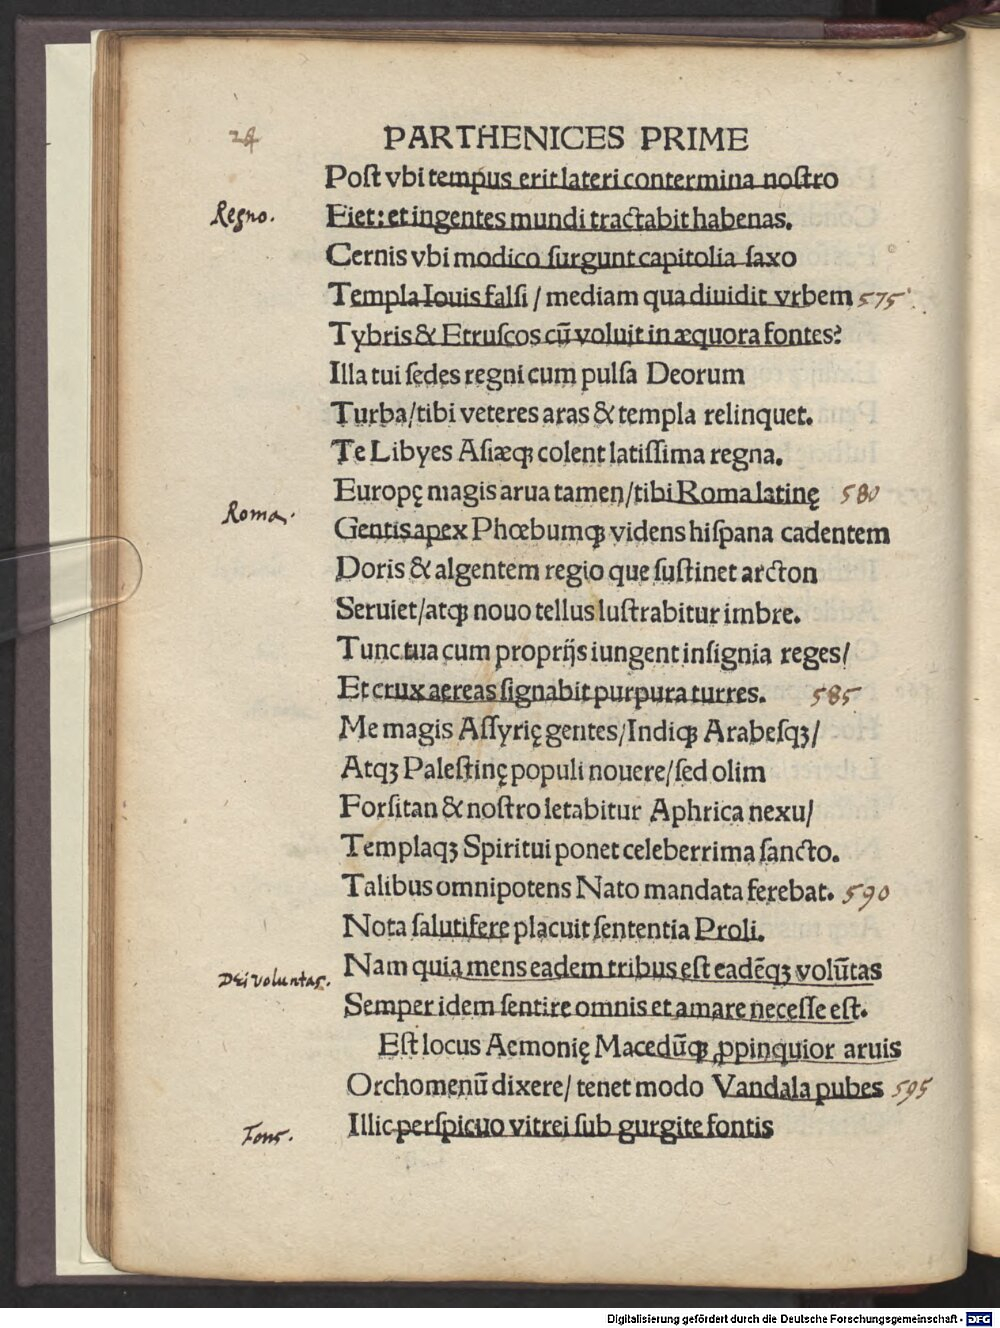 24
PARTHENICES PRIME
Poſt vbi tempus erit lateri contermina noſtro
Regno.
Fiet: et ingentes mundi tractabit habenas.
Cernis vbi modico ſurgunt capitolia ſaxo
Templa Iouis falſi / mediam qua diuidit vrbem 575
Tybris & Etruſcos cū voluit in æquora fontes?
Illa tui ſedes regni cum pulſa Deorum
Turba/tibi veteres aras & templa relinquet.
Te Libyes Aſiæqꝫ colent latiſſima regna.
Europę magis arua tamen/tibi Roma latinę 580
Roma.
Gentis apex Phœbumqꝫ videns hiſpana cadentem
Doris & algentem regio que ſuſtinet arcton
Seruiet/atqꝫ nouo tellus luſtrabitur imbre.
Tunc tua cum proprijs iungent inſignia reges/
Et crux aereas ſignabit purpura turres. 585
Me magis Aſſyrię gentes/Indiqꝫ Arabeſqꝫ/
Atqꝫ Paleſtinę populi nouere/ſed olim
Forſitan & noſtro letabitur Aphrica nexu/
Templaqꝫ Spiritui ponet celeberrima ſancto.
Talibus omnipotens Nato mandata ferebat. 590
Nota ſalutifere placuit ſententia Proli.
Dei voluntas.
Nam quia mens eadem tribus eſt eadēqꝫ volūtas
Semper idem ſentire omnis et amare neceſſe eſt.
Eſt locus Aemonię Macedūqꝫ ꝓpinquior aruis
Orchomenū dixere/ tenet modo Vandala pubes 595
Fons.
Illic perſpicuo vitrei ſub gurgite fontis
Digitalisierung gefördert durch die Deutsche Forschungsgemeinschaft - DFG